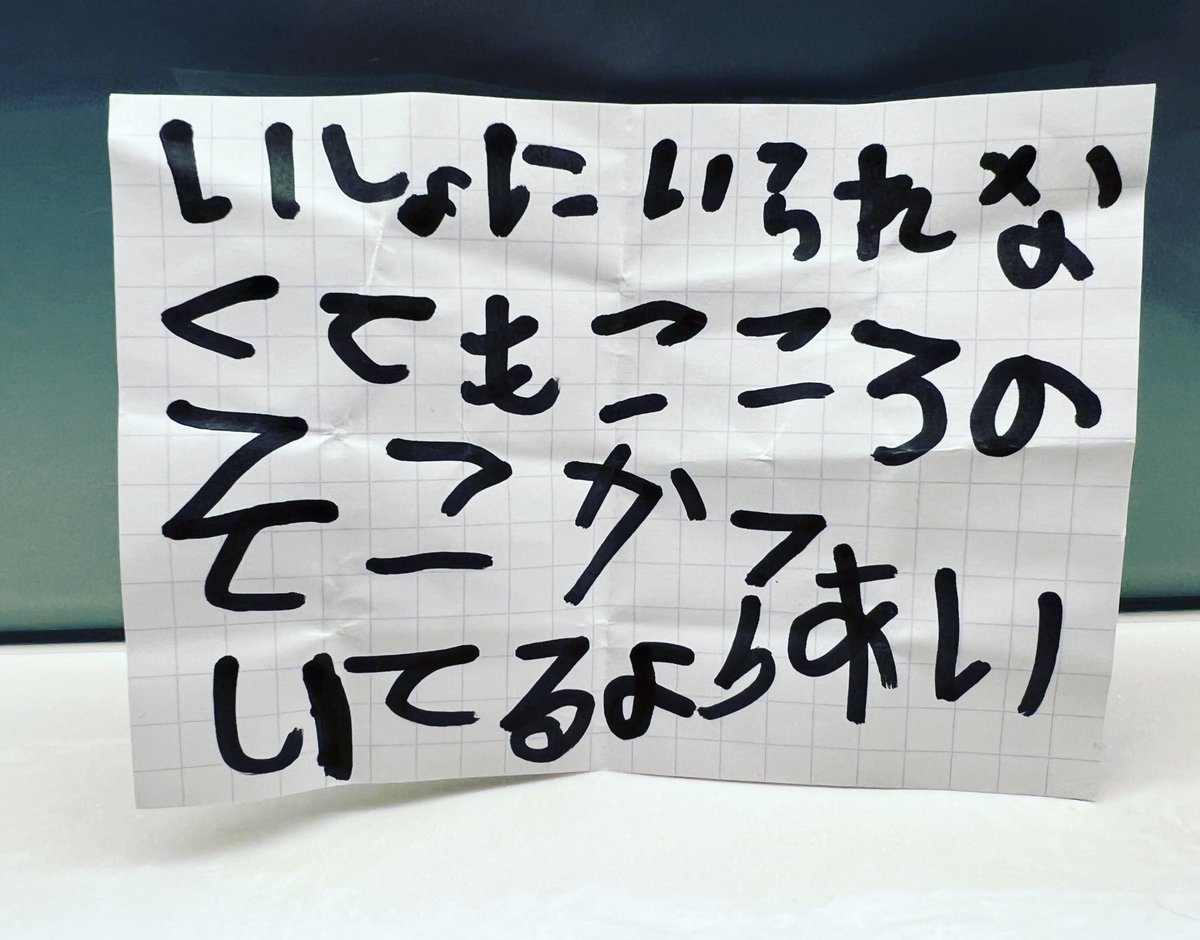 いしょにいられな
くてもこころの
そこからあい
してるよ